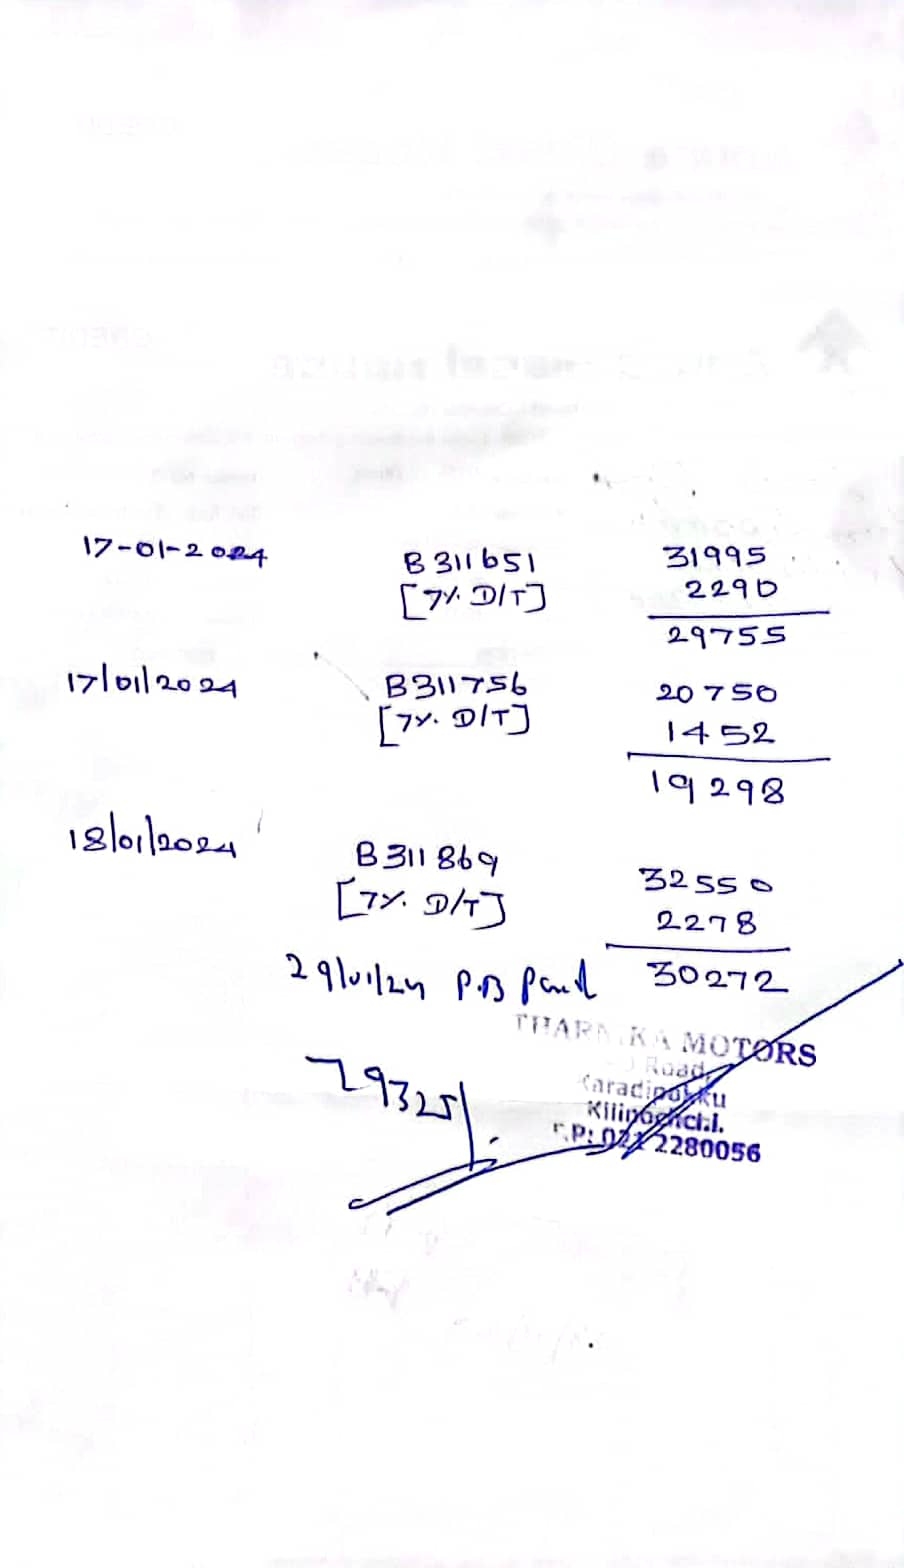 17-01-2024 B 311651 31995
[7% D/T] 2290
29755
17/01/2024 B311756 20750
[7% D/T] 1452
19298
18/01/2024 B 311869 32550
[7% D/T] 2278
29/01/24 P.B Paid 30272
79325/.
MOTORS
Road,
Karadipokku
Kilinochchi.
T.P: 021 2280056